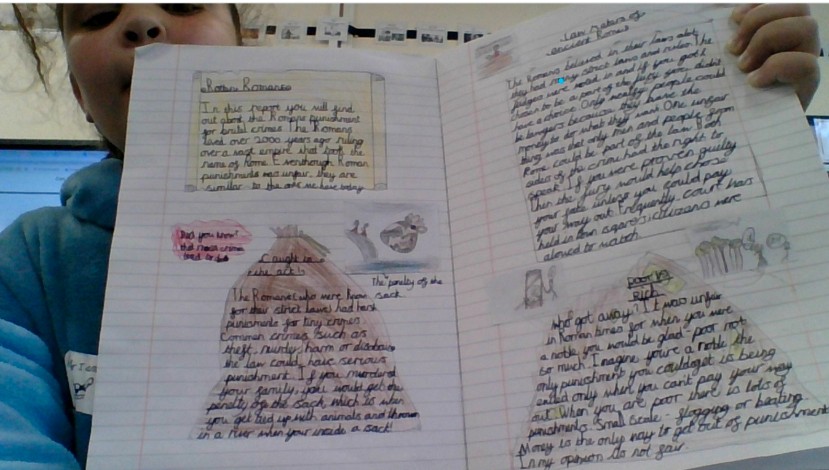 Romans
In this report you will find
out about the Romans punishment
for brutal crimes. The Romans
lived over 2000 years ago ruling
over a vast empire that took the
name of Rome. Eventhough Roman
punishments was unfair, they are
similar to the ones we have today
Did you know?
that most crimes
Caught in
the act!
The penalty of the
sack
The Romans who were know
for their strict laws had harsh
punisments for tiny crimes.
Common crimes such as
theft, murder, harm or disobeying
the law could have serious
punishment. If you murdered
your family, you would get the
penalty of the sack, which is when
you get tied up with animals and thrown
in a river when your inside a sack!
Law makers of
ancient Romans
The Romans believed in their laws and
they had many strict laws and rules. The
judges were voted in and if you got
chosen to be a part of the jury you didn't
have a choice. Only wealthy people could
be lawyers because they have the
money to do what they want. One unfair
thing was that only men and people from
Rome could be part of the law. Both
sides of the crime had the right to
speak. If you were proven guilty
then the jury would help choose
your fate unless you could pay
your way out. Frequently, court was
held in town squares, citizens were
allowed to watch.
Poor vs
Rich
Who got away? It was unfair
in Roman times for when you were
a noble you would be glad - poor not
so much. Imagine you're a noble the
only punishment you could get is being
exiled only when you can't pay your way
out. When you are poor there is lots of
punishments. Small Scale - flogging or beating
Money is the only way to get out of punishment
In my opinion is not fair.